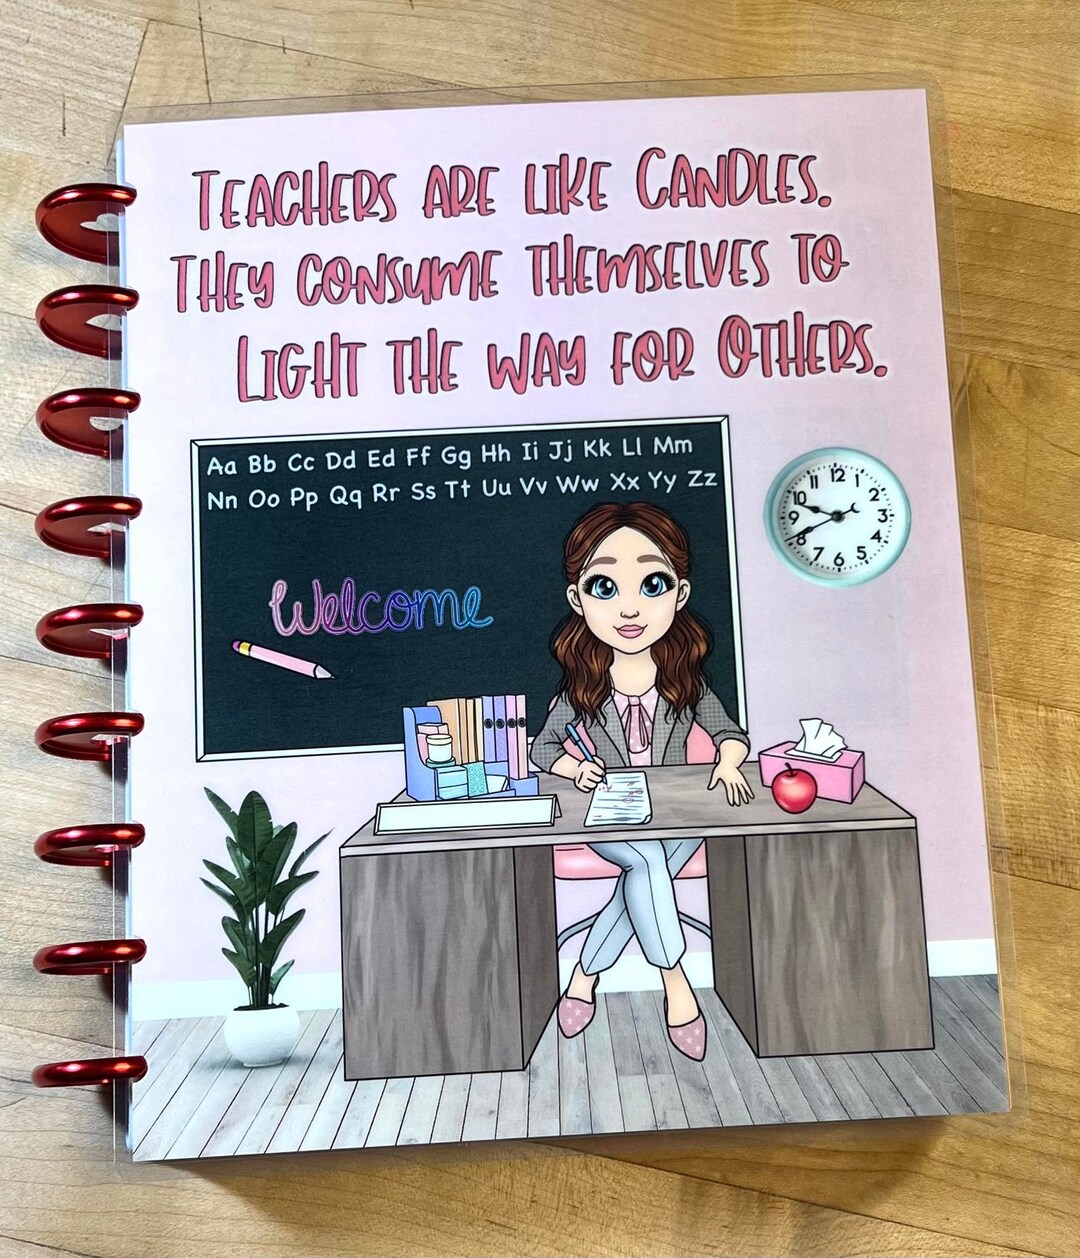 Teachers are like Candles.
They consume themselves to
Light the way for Others.
Aa Bb Cc Dd Ed Ff Gg Hh Ii Jj Kk Ll Mm
Nn Oo Pp Qq Rr Ss Tt Uu Vv Ww Xx Yy Zz
Welcome
11 12 1
10 2
9 3
8 4
7 6 5